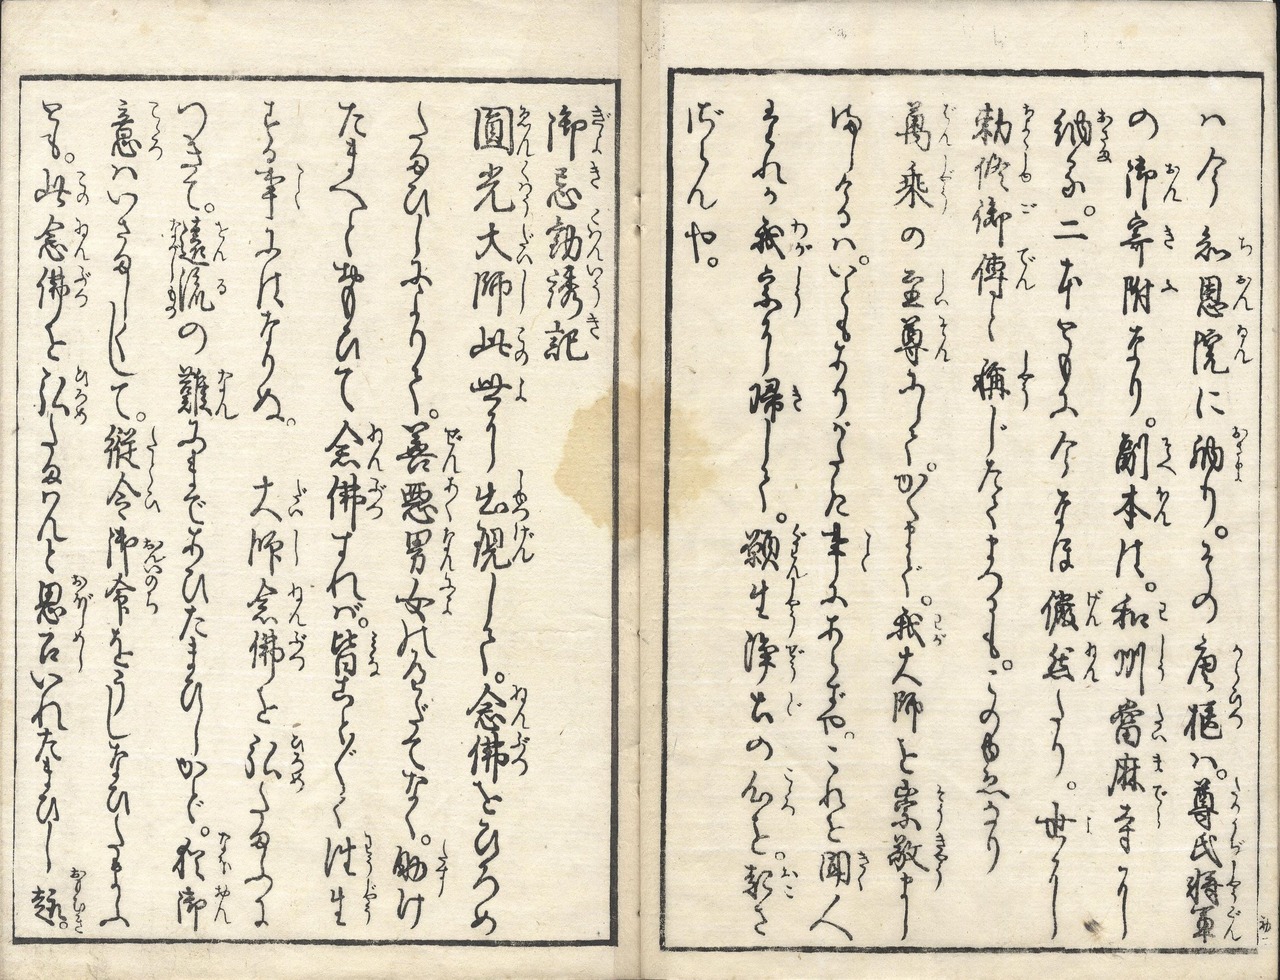 ハ今知恩院に納り。その唐櫃ハ。尊氏将軍
の御寄附なり。副本は。和州當麻寺に
納る。二本ともに今なほ儼然たり。世に
勅修御傳と稱じたてまつるも。このゆゑなり
萬乘の至尊にして。かくまで。我大師を崇敬まし
ましけるハ。いともありがたき事にあらずや。これを聞人
たれか我宗に帰して。願生浄土の心を。おこさ
ざらんや。
御忌勧誘記
圓光大師此世に出現して。念佛をひろめ
たまひしによりて。善悪男女のへだてなく。助け
たまへとおもひて念佛すれば。皆ことごとく往生
する事にはなりぬ。大師念佛を弘たまふに
つきて。遠流の難にまであひたまひしかど。猶御
意ハいさましくして。縦令御命をうしなひたまふ
とも。此念佛を弘たまはんと思召いれたまひし趣。